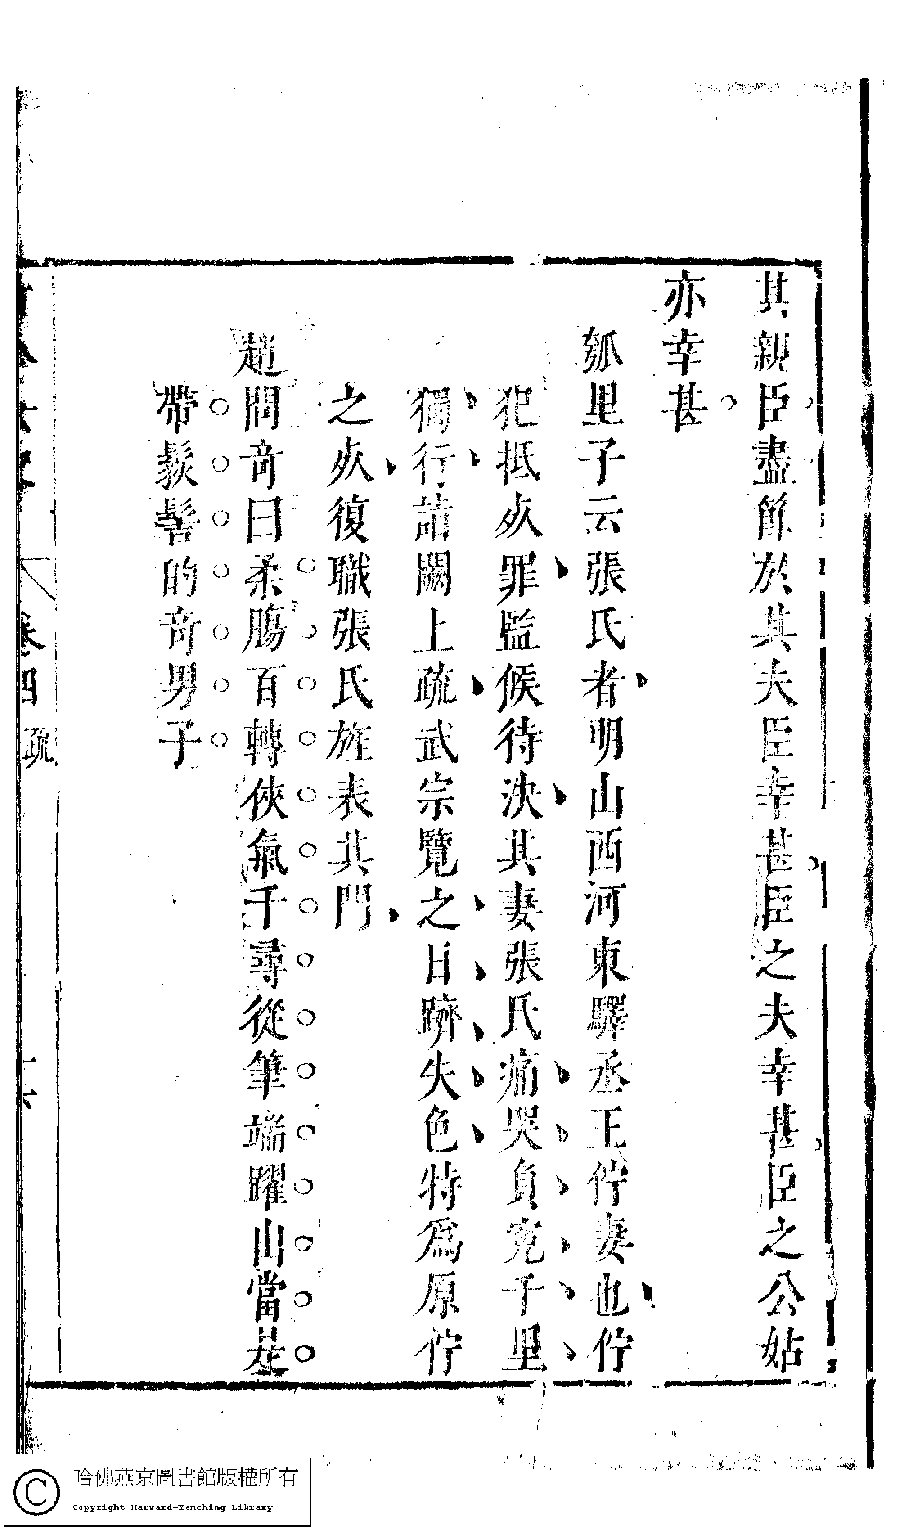 其親臣盡節於其夫臣幸甚臣之夫幸甚臣之公姑
亦幸甚
瓠里子云張氏者明山西河東驛丞王佇妻也佇
犯抵死罪監候待決其妻張氏痛哭負寃千里
獨行詣闕上疏武宗覽之日躋失色特為原佇
之死復職張氏旌表其門
趙問奇曰柔腸百轉俠氣千尋從筆端躍出當是
帶鬏髻的奇男子
卷四
疏
哈佛燕京圖書館版權所有
Copyright Harvard-Yenching Library